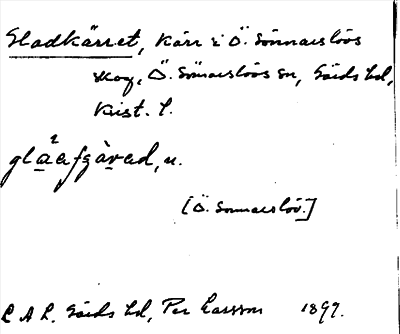 Gladkärret, Kärr i Ö. Sönnarslövs
skog, Ö. Sönnarslövs sn, Gärds hd,
Krist. l.
gla²afgàrad, n.
[Ö. Sonnarslöv.]
L A L. Gärds hd, Per Larsson 1897.